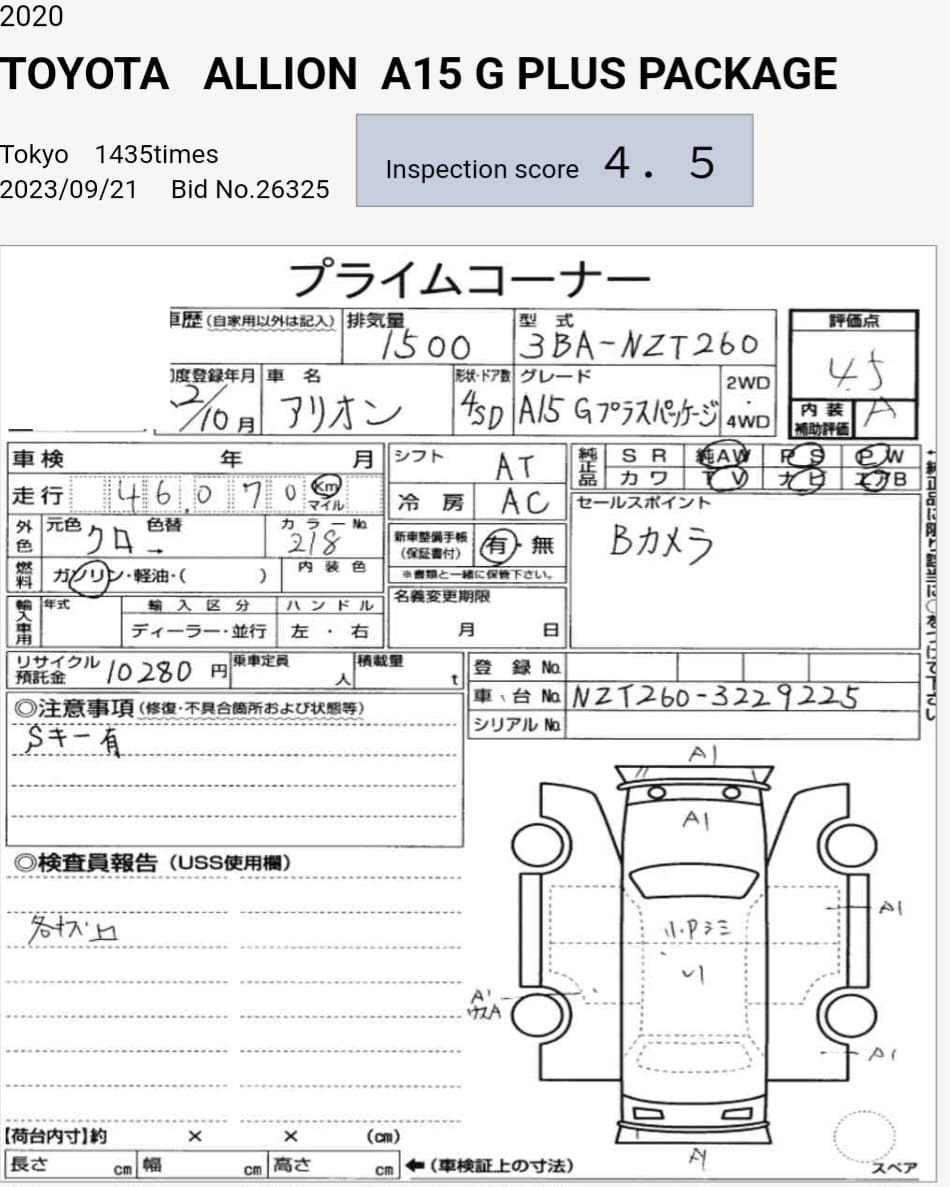 2020
TOYOTA ALLION A15 G PLUS PACKAGE
Tokyo 1435times
2023/09/21 Bid No.26325
Inspection score 4. 5
プライムコーナー
車歴 (自家用以外は記入) 排気量 型式 評価点
1500 3BA-NZT260 4.5
度登録年月 車名 形状・ドア数 グレード 2WD・4WD
2/10月 アリオン 4SD A15 Gプラスパッケージ
内装補助評価 A
車検 年 月
シフト AT
純正品 SR 純AW PS PW
カワ TV ナビ エアB
走行 46.070 Km マイル
冷房 AC
セールスポイント
Bカメラ
外色 元色 クロ 色替 → カラーNo. 218
新車整備手帳(保証書付) 有・無
※書類と一緒に保管下さい。
燃料 ガソリン・軽油・( ) 内装色
名義変更期限
月 日
輸入車用 年式 輸入区分 ハンドル
ディーラー・並行 左・右
リサイクル預託金 10280円 乗車定員 人 積載量 t
登録No.
車台No. NZT260-3229225
シリアルNo.
◎注意事項(修復・不具合箇所および状態等)
Sキー有
◎検査員報告(USS使用欄)
A1
A1
A1
A1
スペア
【荷台内寸】約 × × (cm)
長さ cm 幅 cm 高さ cm ←(車検証上の寸法)